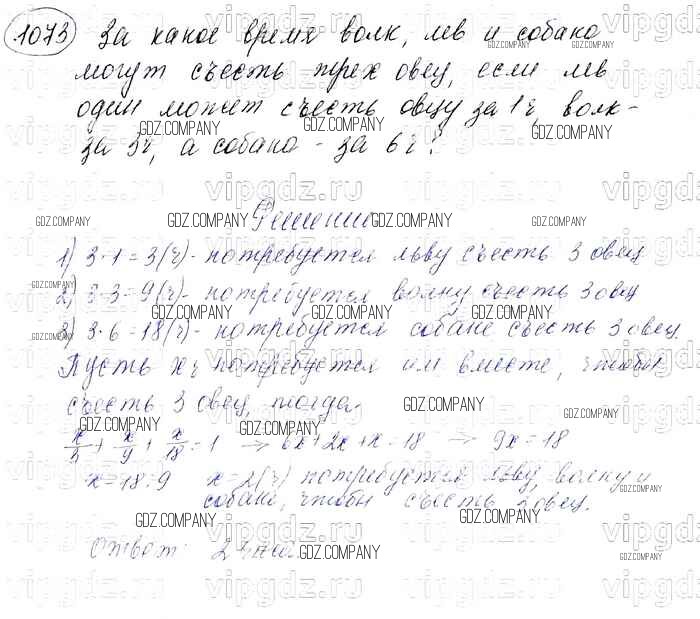 1073 За какое время волк, лев и собака
могут съесть трех овец, если лев
один может съесть овцу за 1 ч, волк -
за 3 ч, а собака - за 6 ч?
Решение
1) 3·1=3 (ч) - потребуется льву съесть 3 овец
2) 3·3=9 (ч) - потребуется волку съесть 3 овец
3) 3·6=18 (ч) - потребуется собаке съесть 3 овец.
Пусть x ч потребуется им вместе, чтобы
съесть 3 овец, тогда
x/3 + x/9 + x/18 = 1 → 6x+2x+x=18 → 9x=18
x=18:9 x=2 (ч) потребуется льву, волку и
собаке, чтобы съесть 3 овец.
Ответ: 2 часа.
GDZ.COMPANY
vipgdz.ru